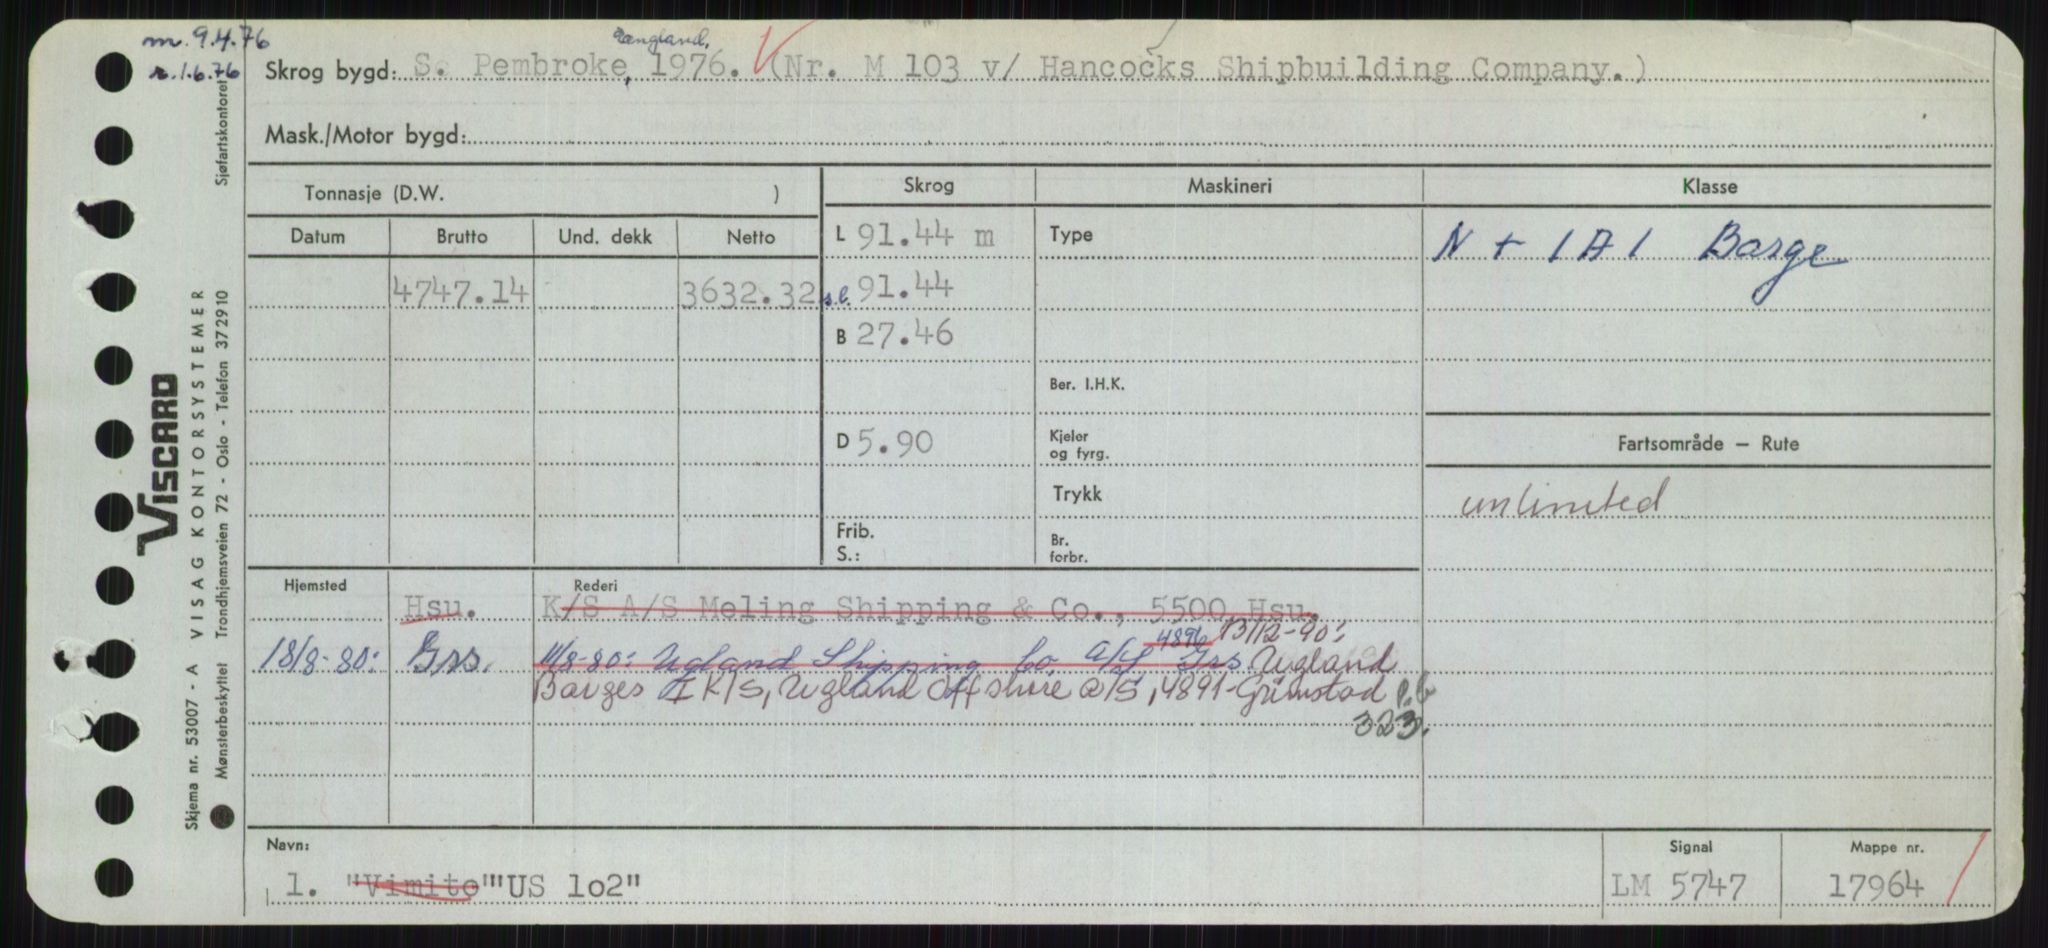 m. 9.4.76
r. 1.6.76
England.
Skrog bygd: S. Pembroke, 1976. (Nr. M 103 v/ Hancocks Shipbuilding Company.)
Mask./Motor bygd:
Tonnasje (D.W. )
Skrog
Maskineri
Klasse
Datum
Brutto
Und. dekk
Netto
L 91.44 m
Type
N + 1A1 Barge
4747.14
3632.32
s.l. 91.44
B 27.46
Ber. I.H.K.
D 5.90
Kjeler
og fyrg.
Fartsområde — Rute
Trykk
unlimited
Frib.
S.:
Br.
forbr.
Hjemsted
Rederi
Hsu. K/S A/S Meling Shipping & Co., 5500 Hsu.
4896 13/12-90:
18/8-80: Grs. 11/8-80: Ugland Shipping Co. A/S Grs. Ugland
Barges I K/S, Ugland Offshore a/s, 4891-Grimstad P.b
323.
Navn:
Signal
Mappe nr.
1. "Vimito" "US 1o2"
LM 5747
17964
Sjøfartskontoret
VISCARD
Skjema nr. 53007 - A VISAG KONTORSYSTEMER
Mønsterbeskyttet Trondhjemsveien 72 - Oslo - Telefon 372910